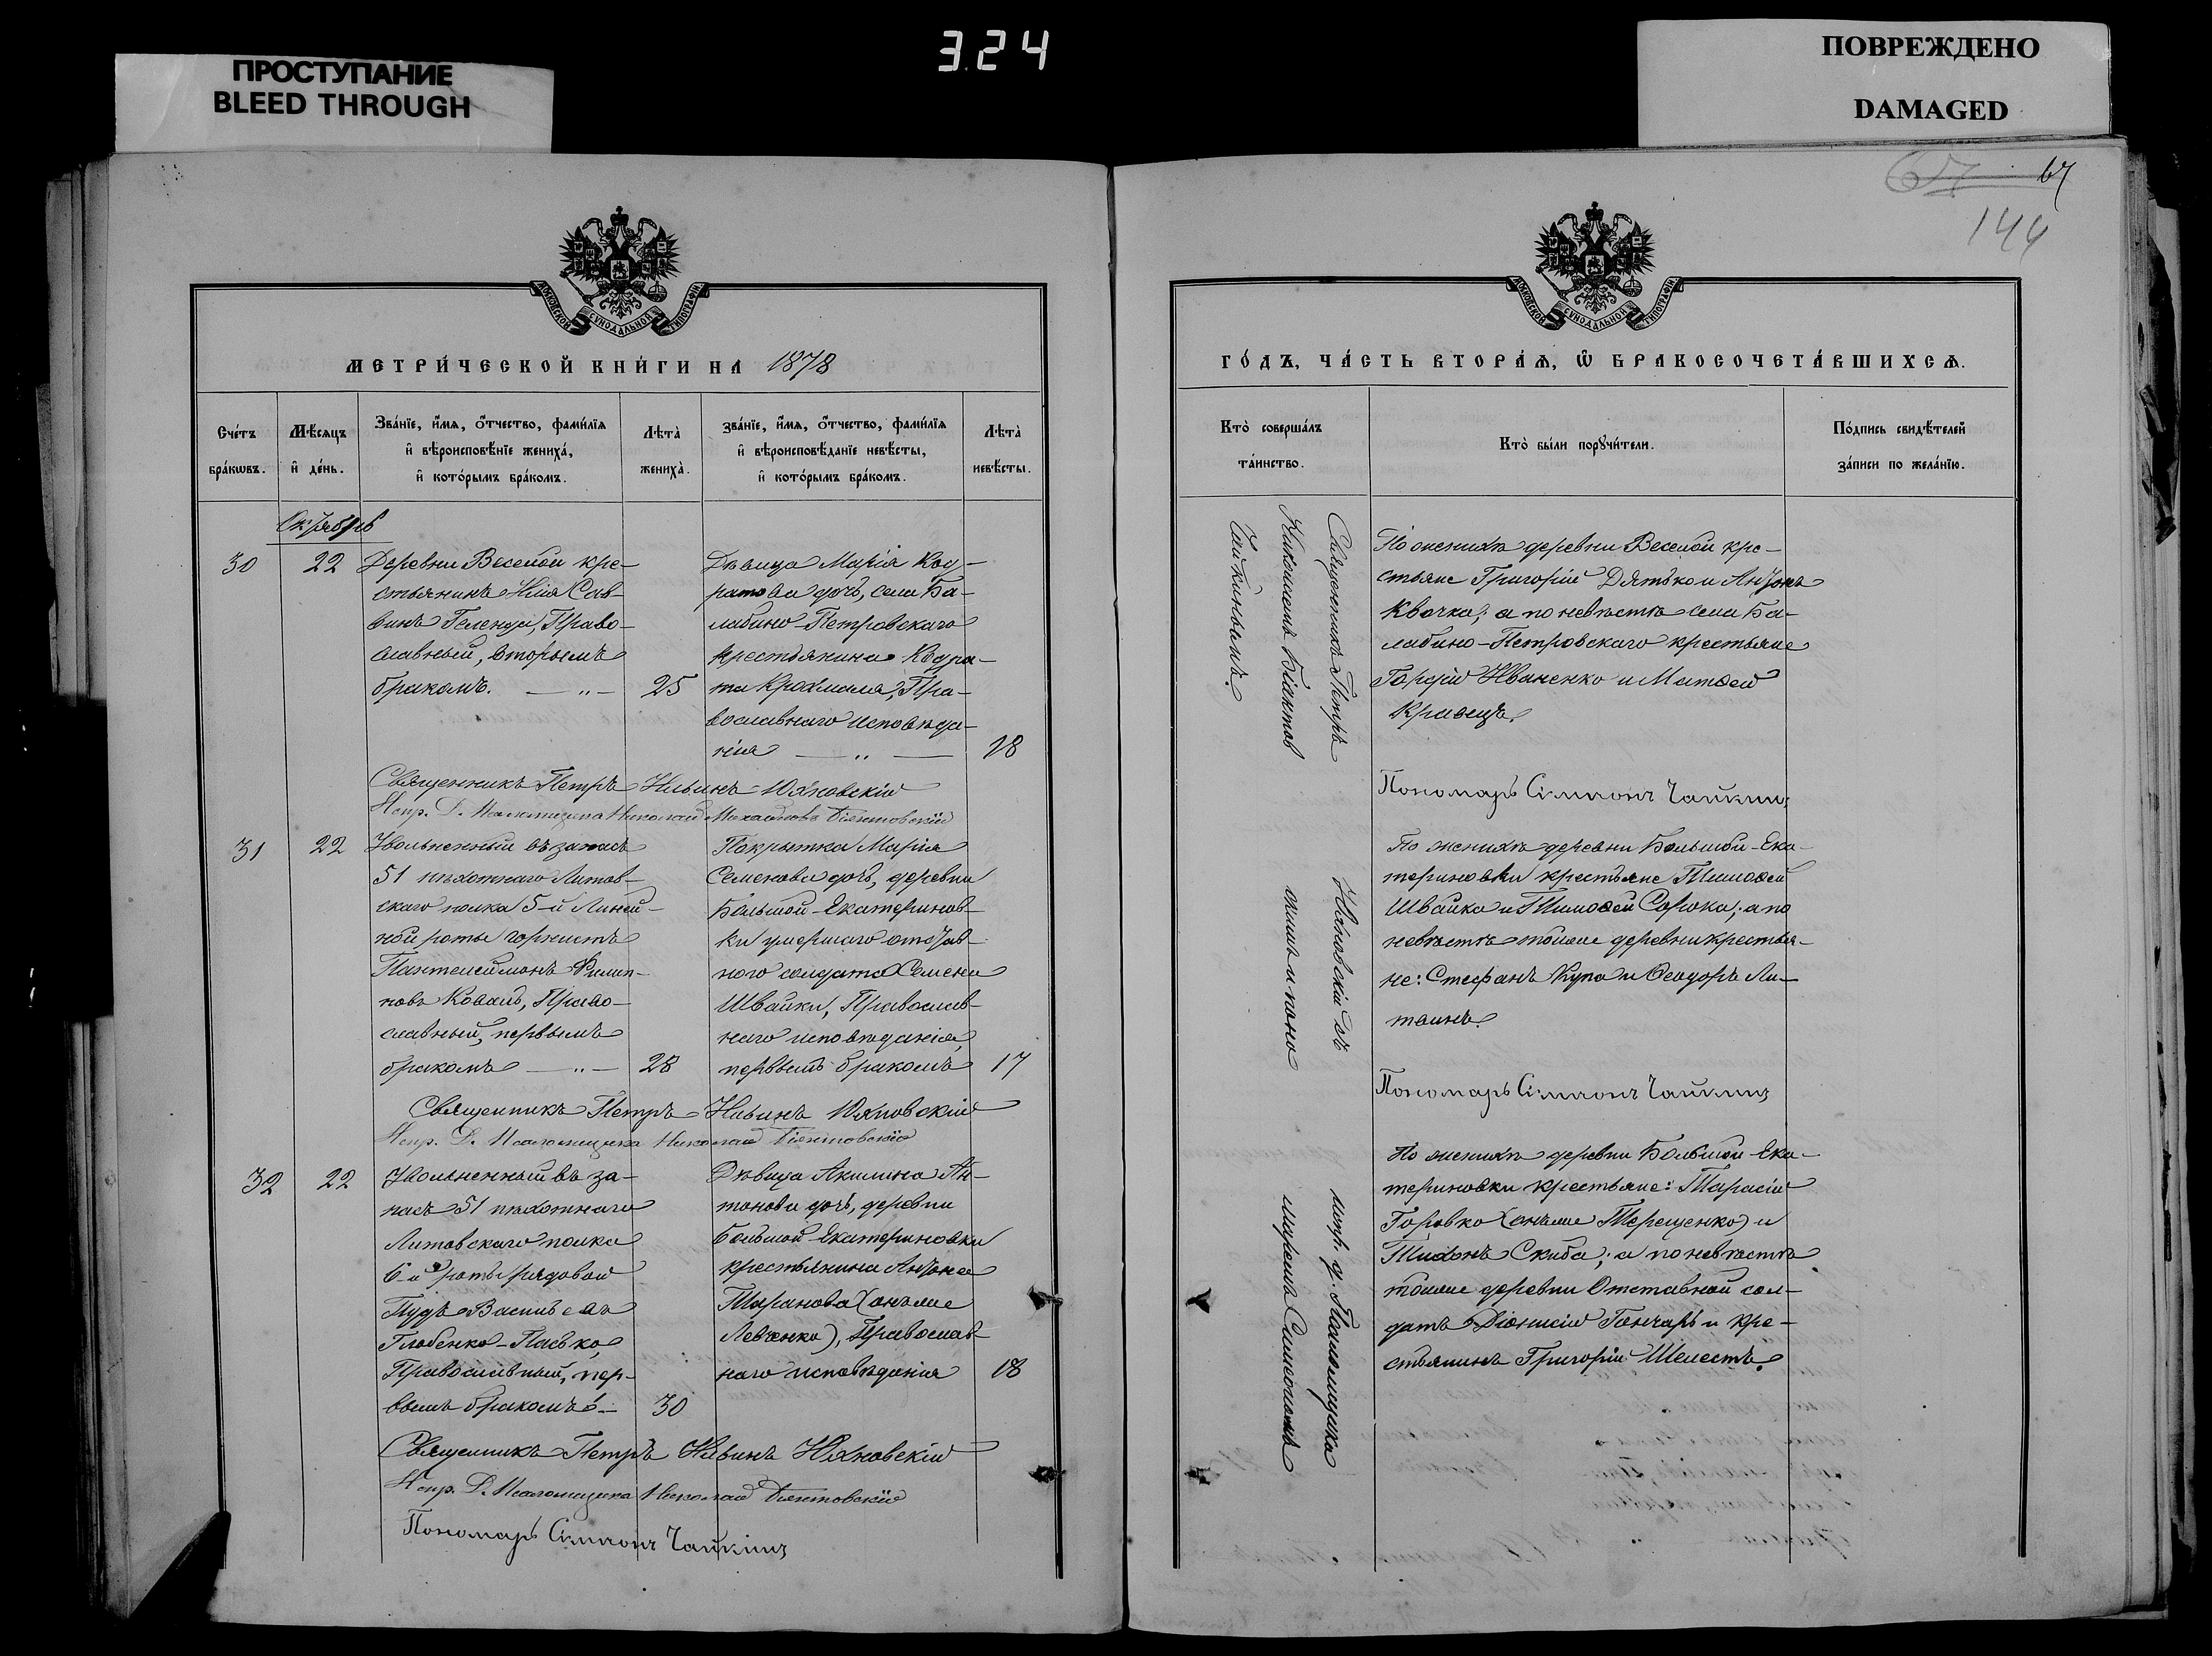 3.24
ПРОСТУПАНИЕ
BLEED THROUGH
ПОВРЕЖДЕНО
DAMAGED
67
67
144
МОСКОВСКОЙ СУНОДАЛЬНОЙ ТИПОГРАФІИ
МЕТРИ́ЧЕСКОЙ КНИ́ГИ НА 1878
Сче́тъ
бра́кѡвъ.
Мѣ́сяцъ
и҆ де́нь.
Зва́нїе, и҆́мѧ, о҆́тчество, фами́лїѧ
и҆ вѣроисповѣ́нїе жениха̀,
и҆ кото́рымъ бра́комъ.
Лѣта̀
жениха̀.
зва́нїе, и҆́мѧ, о҆́тчество, фами́лїѧ
и҆ вѣроисповѣ́данїе невѣ́сты,
и҆ кото́рымъ бра́комъ.
Лѣта̀
невѣ́сты.
Октябрь
30
22
Деревни Веселой кре-
стьянинъ Илія Сав-
винъ Геленда, Право-
славный, вторымъ
бракомъ. — „ —
25
Дѣвица Марія Код-
ратова дочь, села Ба-
лабино-Петровскаго
крестьянина Кодра-
та Крохмаля, Пра-
вославнаго исповѣда-
нія — „ —
18
Священникъ Петръ Ильинъ Юхновскій
Испр. Д. Псаломщика Николай Михайловъ Біянтовскій
31
22
Уволенный въ запасъ
51 пѣхотнаго Литов-
скаго полка 5-й Линей-
ной роты горнистъ
Пантелеймонъ Филип-
повъ Коваль, Право-
славный, первымъ
бракомъ — „ —
28
Покрытка Марія
Семенова дочь, деревни
Большой-Екатеринов-
ки умершаго отстав-
ного солдата Семена
Швайки, Православ-
наго исповѣданія,
первымъ бракомъ
17
Священникъ Петръ Ильинъ Юхновскій
Испр. Д. Псаломщика Николай Біянтовскій
32
22
Уволенный въ за-
пасъ 51 пѣхотнаго
Литовскаго полка
6-й роты рядовой
Пудъ Васильевъ
Глобенко-Пасько,
Православный, пер-
вымъ бракомъ —
30
Дѣвица Акилина Ан-
тонова дочь, деревни
Большой Екатериновки
крестьянина Антона
Таранова (онъ же
Левченко), Православ-
наго исповѣданія
18
Священникъ Петръ Ильинъ Юхновскій
Испр. Д. Псаломщика Николай Біянтовскій
Пономарь Симеонъ Чайкинъ
МОСКОВСКОЙ СУНОДАЛЬНОЙ ТИПОГРАФІИ
ГО́ДЪ, ЧА́СТЬ ВТОРА́Ѧ, Ѡ҆ БРАКОСОЧЕТА́ВШИХСѦ.
Кто̀ соверша́лъ
та́инство.
Кто̀ бы́ли порꙋчи́тели.
По́дпись свидѣ́телей
за́писи по жела́нїю.
Священникъ Петръ Юхновскій съ испр. д. Псаломщика
Николаемъ Біянтовскимъ и пономаремъ Симеономъ
Чайкинымъ.
По женихѣ деревни Веселой кре-
стьяне Григорій Дятько и Антонъ
Квачка; а по невѣстѣ села Ба-
лабино-Петровскаго крестьяне
Гордій Иваненко и Матѳей
Кравецъ.
Пономарь Симеонъ Чайкинъ
По женихѣ деревни Большой-Ека-
териновки крестьяне Тимоѳей
Швайка и Тимоѳей Сорока; а по
невѣстѣ тойже деревни крестья-
не: Стефанъ Купа и Ѳеодоръ Ли-
твинъ.
Пономарь Симеонъ Чайкинъ
По женихѣ деревни Большой-Ека-
териновки крестьяне: Тарасій
Горовко (онъ же Терещенко) и
Тихонъ Скиба; а по невѣстѣ
тойже деревни Отставной сол-
датъ Діонисій Гончаръ и кре-
стьянинъ Григорій Шелестъ.